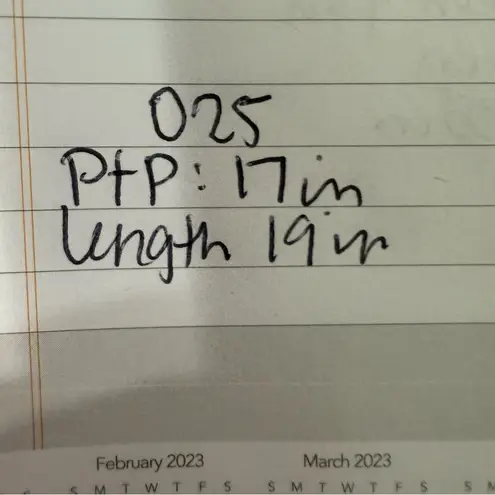 025
PtP: 17in
length 19in
February 2023 March 2023
S M T W T F S S M T W T F S S M